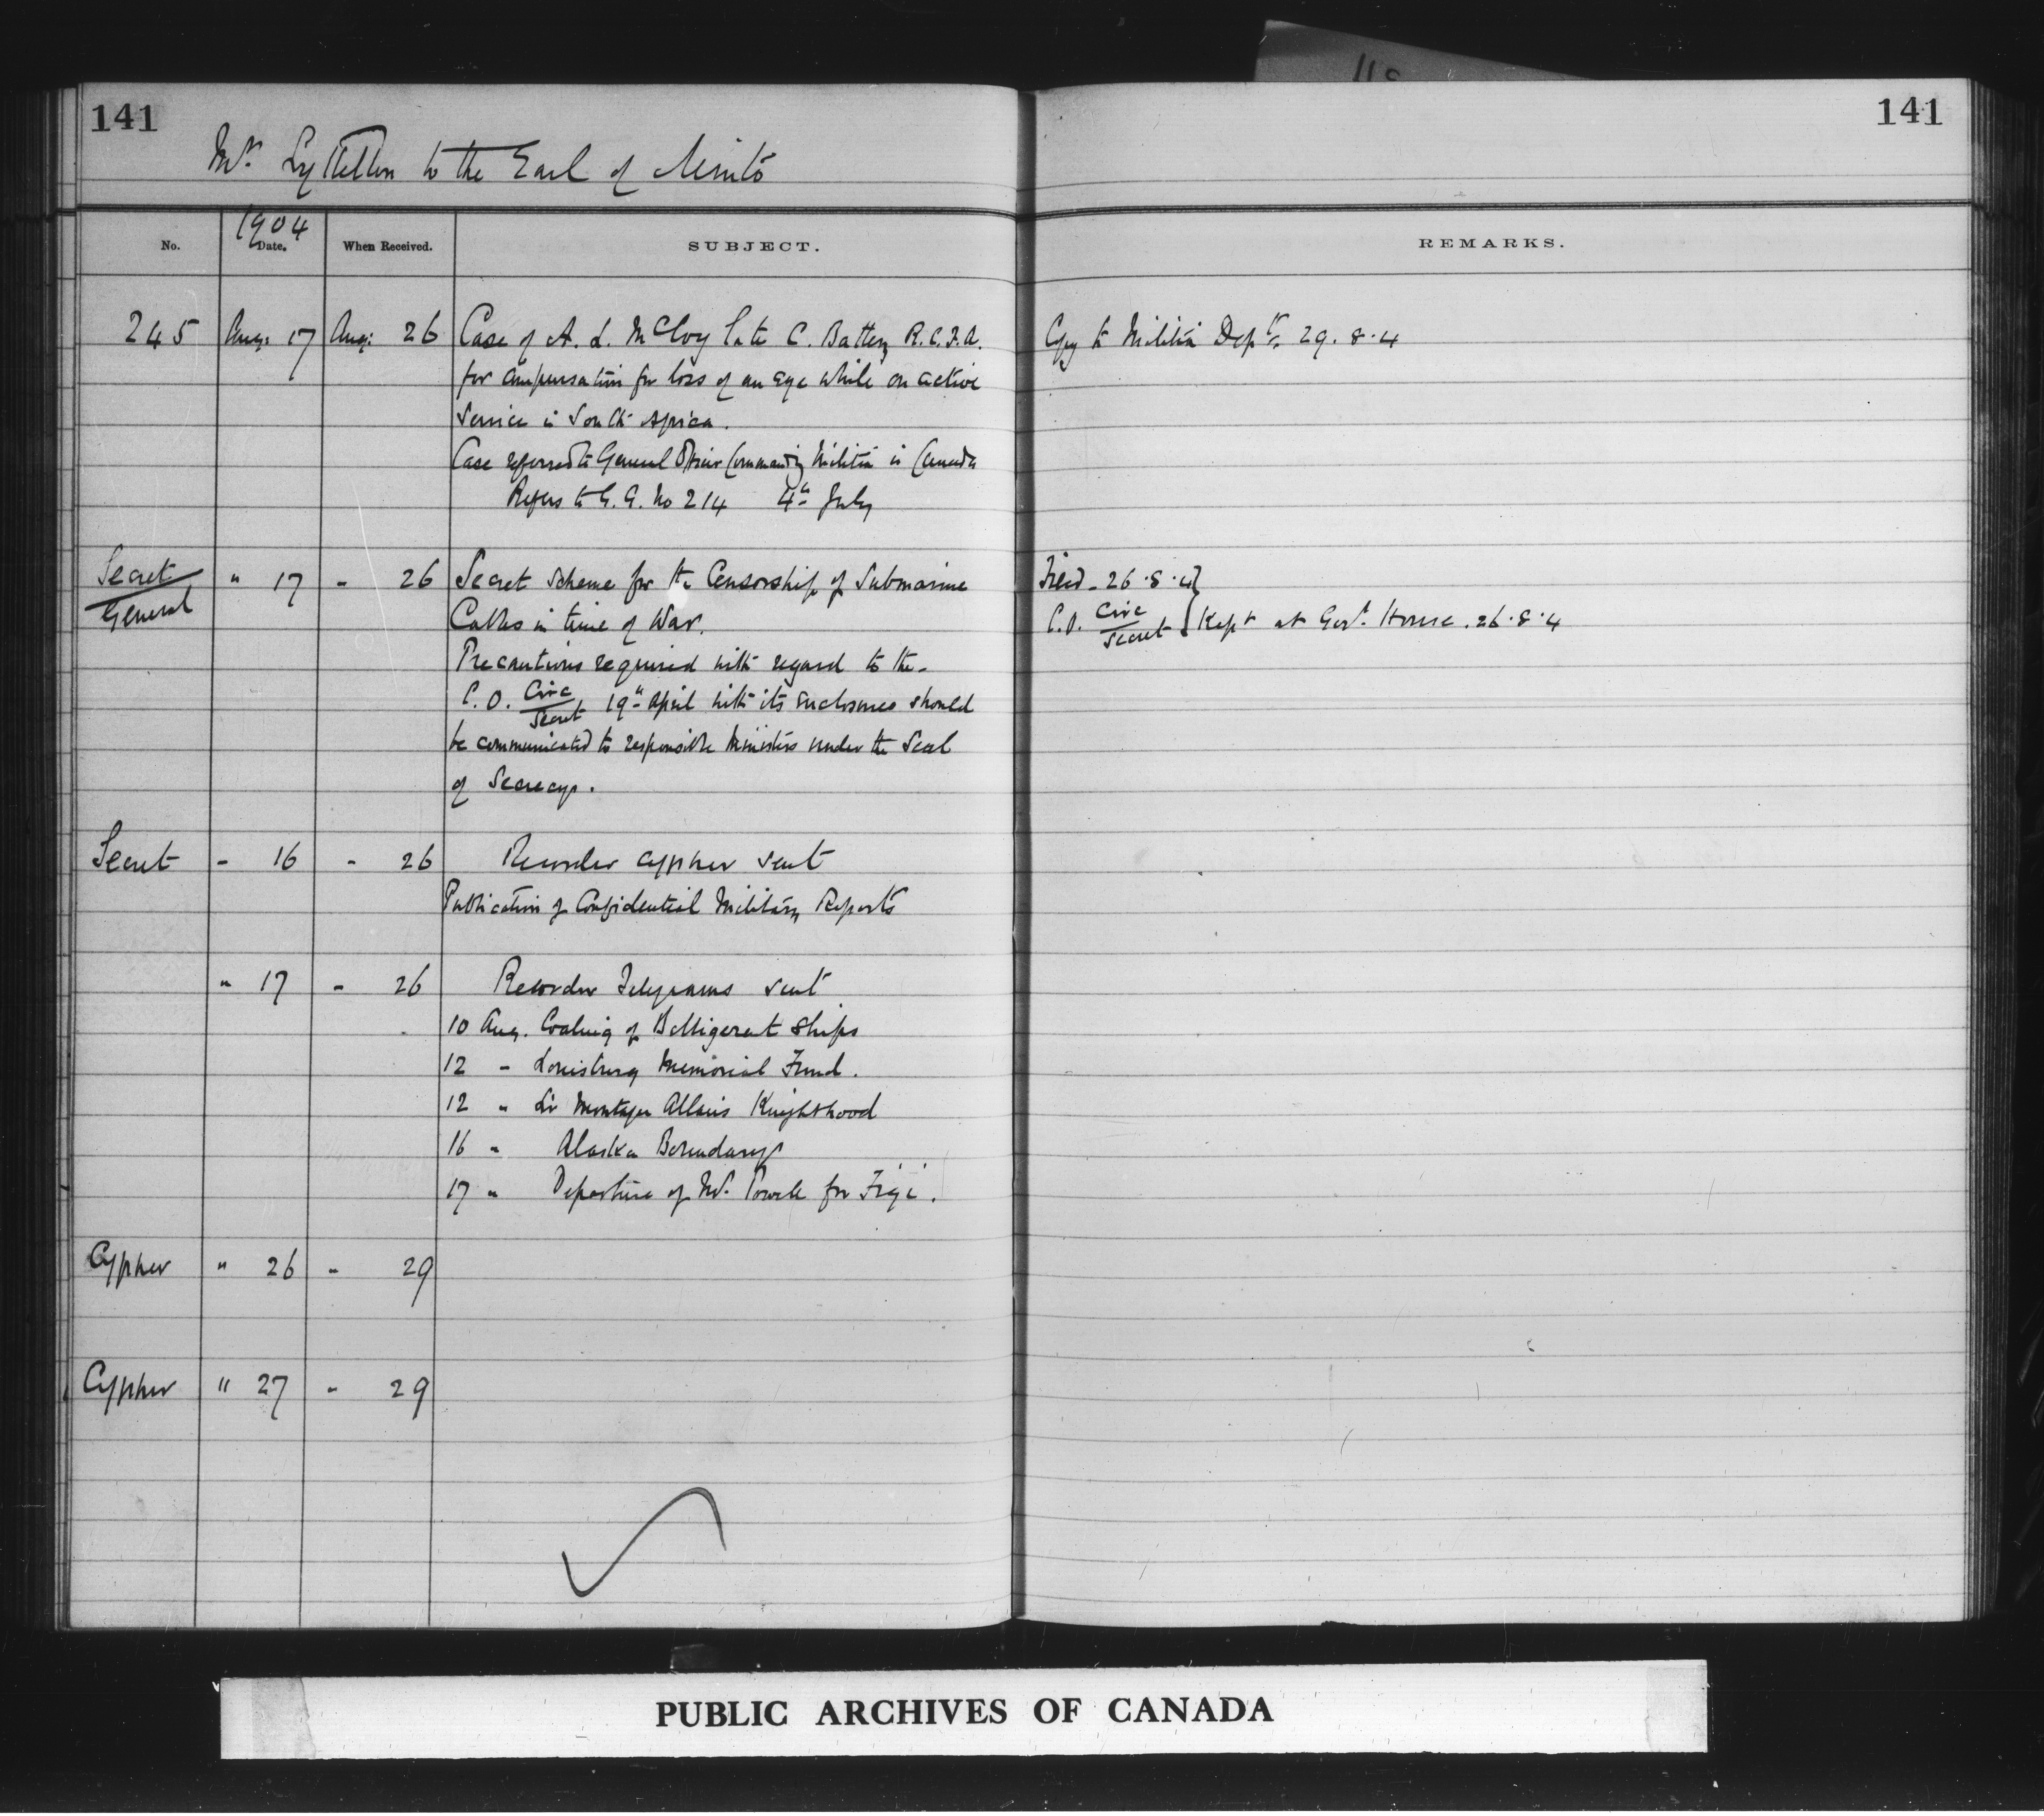 141
141
Mr. Lyttelton to the Earl of Minto
No.
1904
Date.
When Received.
SUBJECT.
REMARKS.
245 Aug: 17 Aug: 26 Case of A. L. McCloy late C. Battery R.C.F.A.
Copy to Militia Dept. 29.8.4
for compensation for loss of an eye while on active
Service in South Africa.
Case referred to General Officer Commanding Militia in Canada
Refers to G.G. No 214 4th July
Secret
General
" 17 - 26 Secret Scheme for the Censorship of Submarine
Cables in time of War.
Filed - 26.8.4
C.O. Circ
Secret
Kept at Govt. House. 26.8.4
Precautions required with regard to the -
C.O. Circ
Secret
19th April with its enclosures should
be communicated to responsible Ministers under the Seal
of Secrecy.
Secret - 16 - 26 Recorder cypher sent
Publication of Confidential Military Reports
" 17 - 26 Recorder Telegrams sent
10 Aug. Coaling of Belligerent Ships
12 - Louisburg Memorial Fund.
12 " Sir Montagu Allan's Knighthood
16 " Alaska Boundary
17 " Departure of Mr. Powell for Fiji.
Cypher " 26 - 29
Cypher " 27 - 29
PUBLIC ARCHIVES OF CANADA